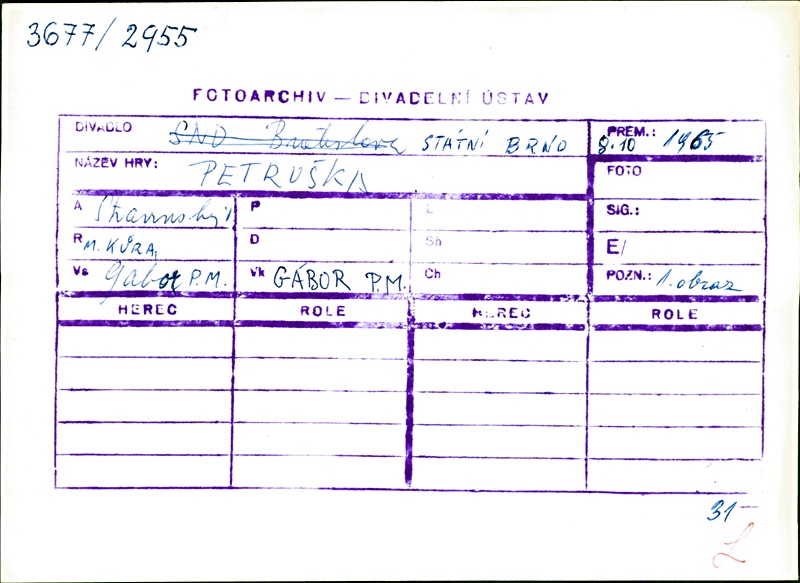 3677/2955
FOTOARCHIV — DIVADELNÍ ÚSTAV
DIVADLO SND Bratislava STÁTNÍ BRNO PREM.: 8.10 1965
NÁZEV HRY: PETRUŠKA FOTO
A Stravinský P L SIG.:
R M. KŮRA D Sh E/
Vs Gabor P.M. Vk GÁBOR P.M. Ch POZN.: 1. obraz
HEREC ROLE HEREC ROLE
31-
L